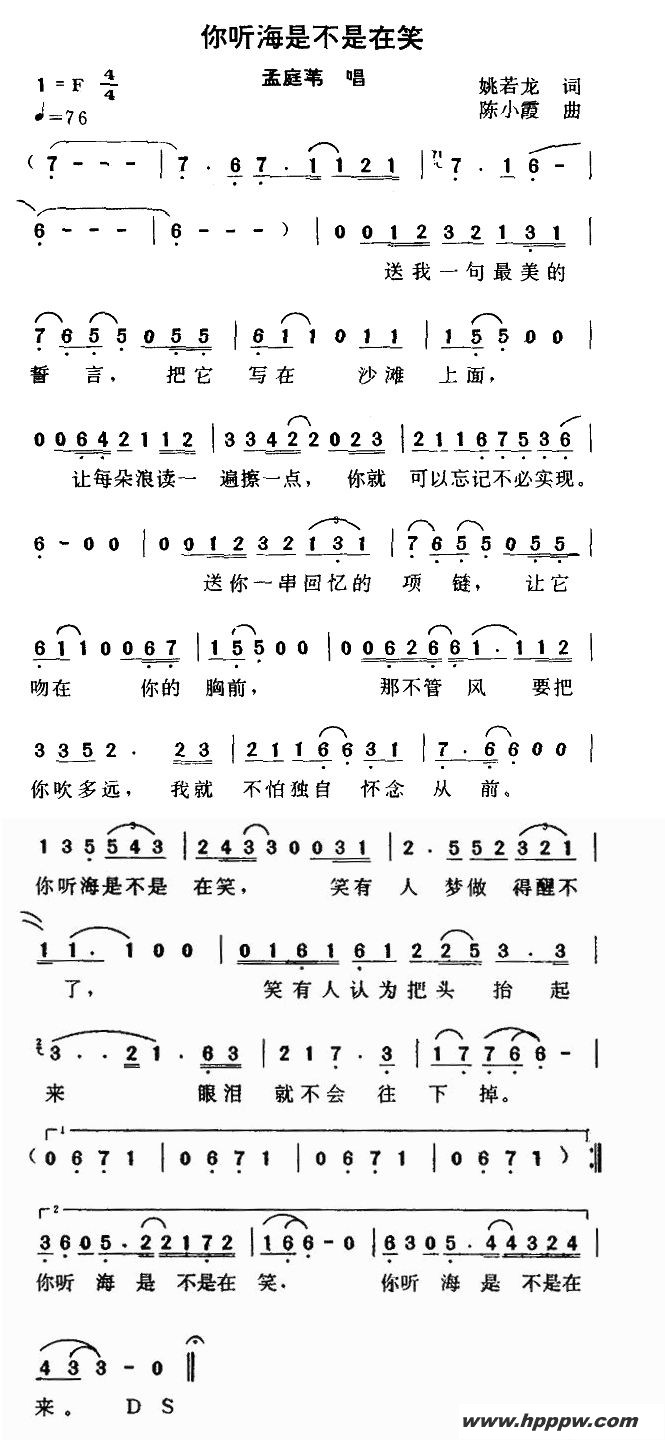 你听海是不是在笑
1 = F 4/4 孟庭苇 唱 姚若龙 词
♩=76 陈小霞 曲
( 7 - - - | 7 . 6 7 . 1 1 2 1 | 7 . 1 6 -
6 - - - | 6 - - - ) | 0 0 1 2 3 2 1 3 1 |
送我一句最美的
7 6 5 5 0 5 5 | 6 1 1 0 1 1 | 1 5 5 0 0 |
誓言, 把它 写在 沙滩 上面,
0 0 6 4 2 1 1 2 | 3 3 4 2 2 0 2 3 | 2 1 1 6 7 5 3 6 |
让每朵浪读一 遍擦一点, 你就 可以忘记不必实现。
6 - 0 0 | 0 0 1 2 3 2 1 3 1 | 7 6 5 5 0 5 5 |
送你一串回忆的 项链, 让它
6 1 1 0 0 6 7 | 1 5 5 0 0 | 0 0 6 2 6 6 1 . 1 1 2 |
吻在 你的 胸前, 那不管 风 要把
3 3 5 2 . 2 3 | 2 1 1 6 6 3 1 | 7 . 6 6 0 0 |
你吹多远, 我就 不怕独自 怀念 从 前。
1 3 5 5 4 3 | 2 4 3 3 0 0 3 1 | 2 . 5 5 2 3 2 1 |
你听海是不是 在笑, 笑有 人 梦做 得醒不
1 1 . 1 0 0 | 0 1 6 1 6 1 2 2 5 3 . 3
了, 笑有人认为把头 抬 起
3 . . 2 1 . 6 3 | 2 1 7 . 3 | 1 7 7 6 6 - |
来 眼泪 就不会 往 下 掉。
1
( 0 6 7 1 | 0 6 7 1 | 0 6 7 1 | 0 6 7 1 ) :||
2
3 6 0 5 . 2 2 1 7 2 | 1 6 6 - 0 | 6 3 0 5 . 4 4 3 2 4 |
你听 海 是 不是在 笑. 你听 海 是 不是在
4 3 3 - 0 ||
来。 D S
www.hpppw.com